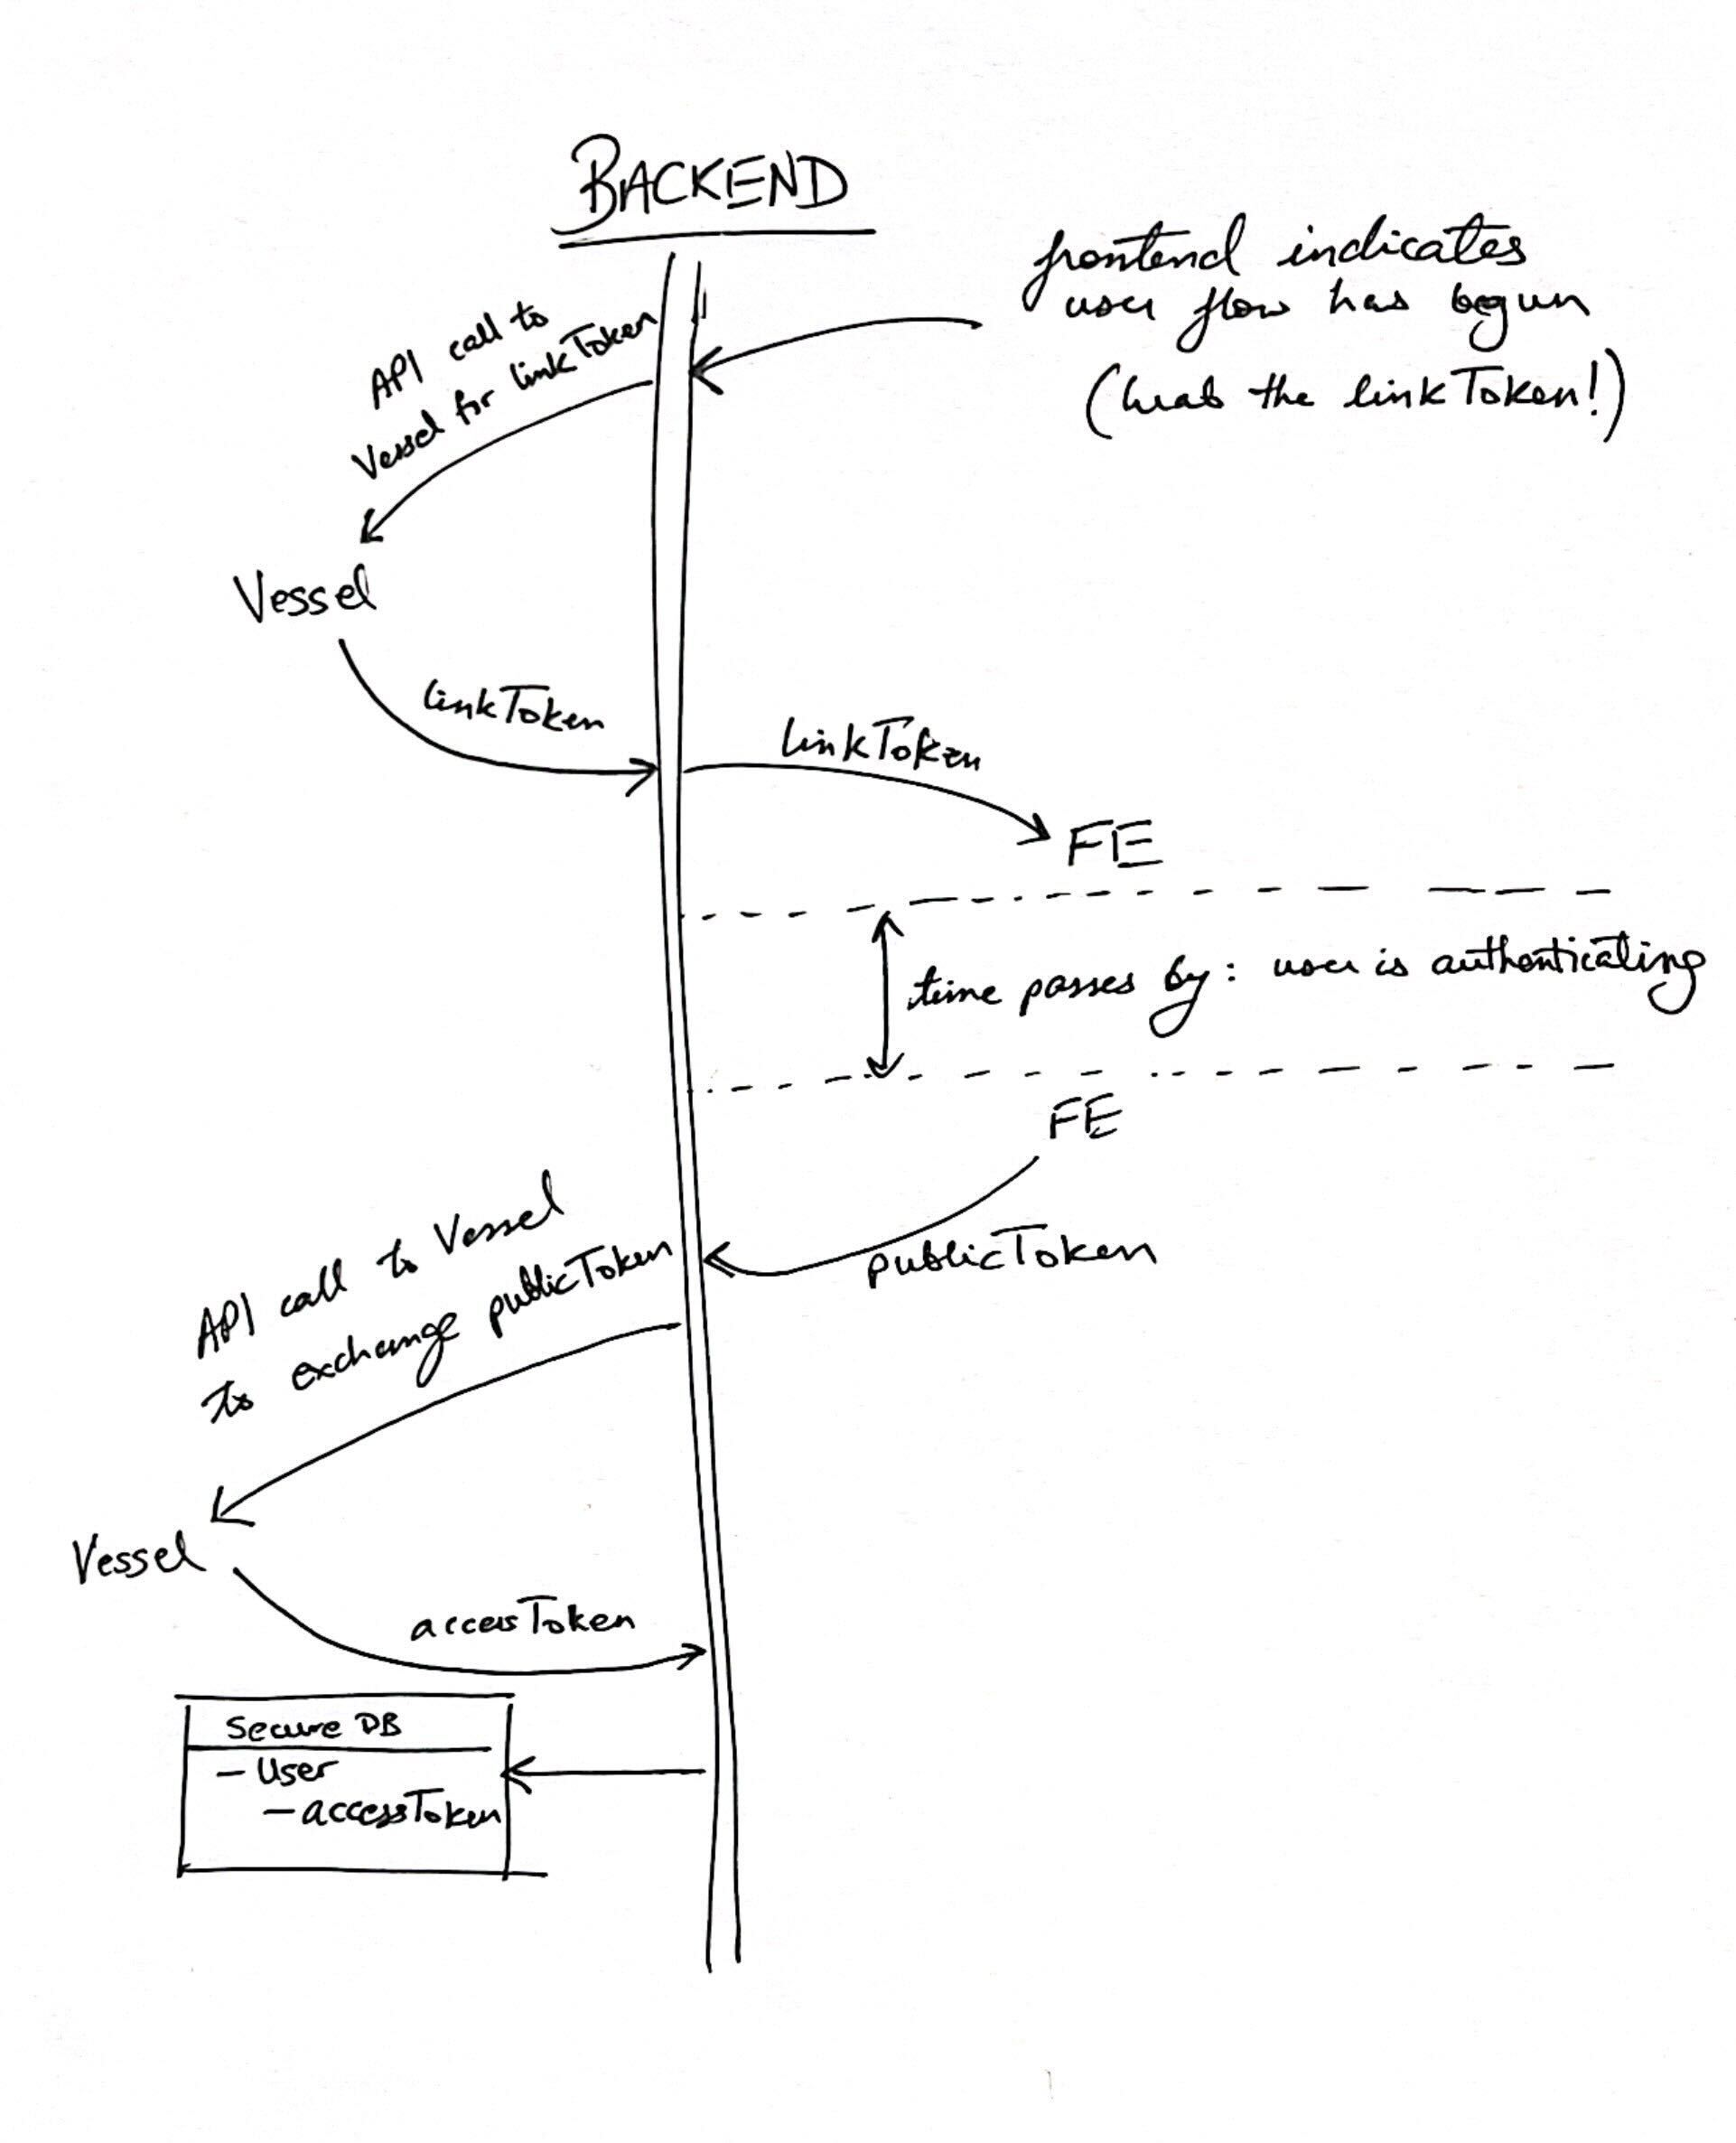 BACKEND
frontend indicates
user flow has begun
(Grab the linkToken!)
API call to
Vessel for linkToken
Vessel
linkToken
linkToken
FE
time passes by: user is authenticating
FE
publicToken
API call to Vessel
to exchange publicToken
Vessel
accessToken
Secure DB
- User
- accessToken